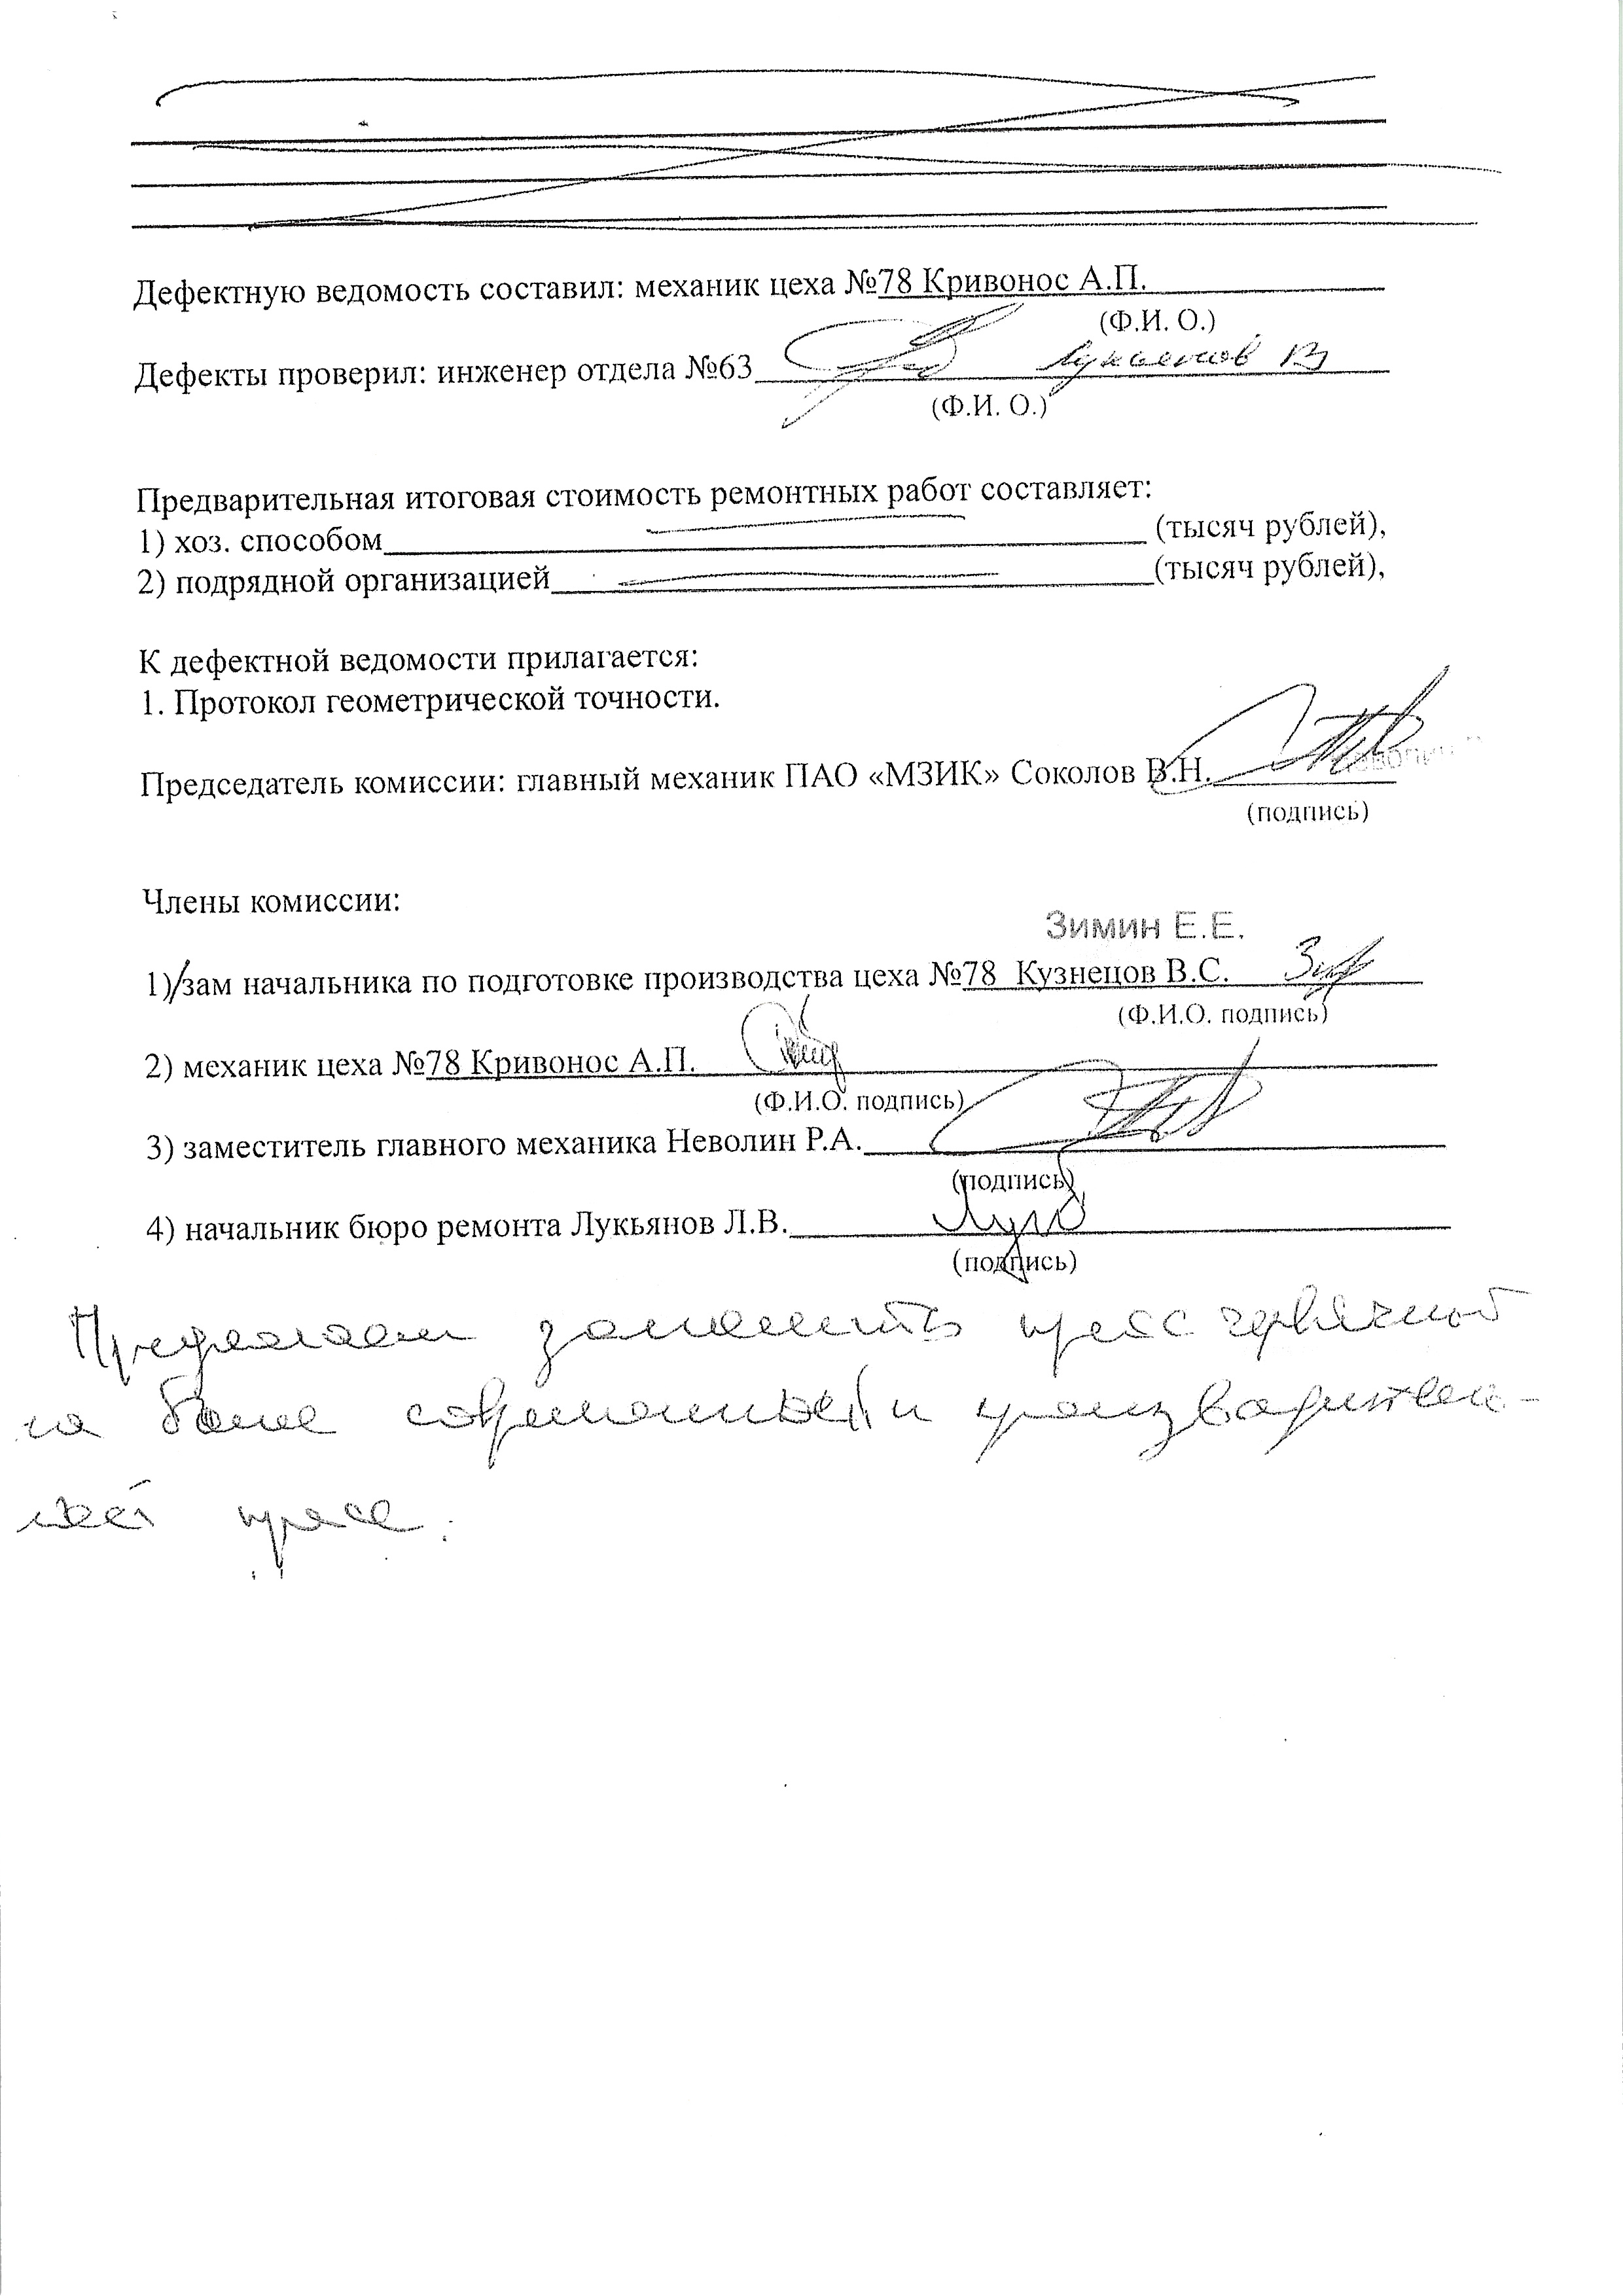 Дефектную ведомость составил: механик цеха №78 Кривонос А.П.
(Ф.И. О.)
Дефекты проверил: инженер отдела №63
(Ф.И. О.)
Предварительная итоговая стоимость ремонтных работ составляет:
1) хоз. способом (тысяч рублей),
2) подрядной организацией (тысяч рублей),
К дефектной ведомости прилагается:
1. Протокол геометрической точности.
Председатель комиссии: главный механик ПАО «МЗИК» Соколов В.Н.
(подпись)
Члены комиссии:
Зимин Е.Е.
1) зам начальника по подготовке производства цеха №78 Кузнецов В.С.
(Ф.И.О. подпись)
2) механик цеха №78 Кривонос А.П.
(Ф.И.О. подпись)
3) заместитель главного механика Неволин Р.А.
(подпись)
4) начальник бюро ремонта Лукьянов Л.В.
(подпись)
Предлагаем заменить пресс червячный
на более современный и производитель-
ный пресс.